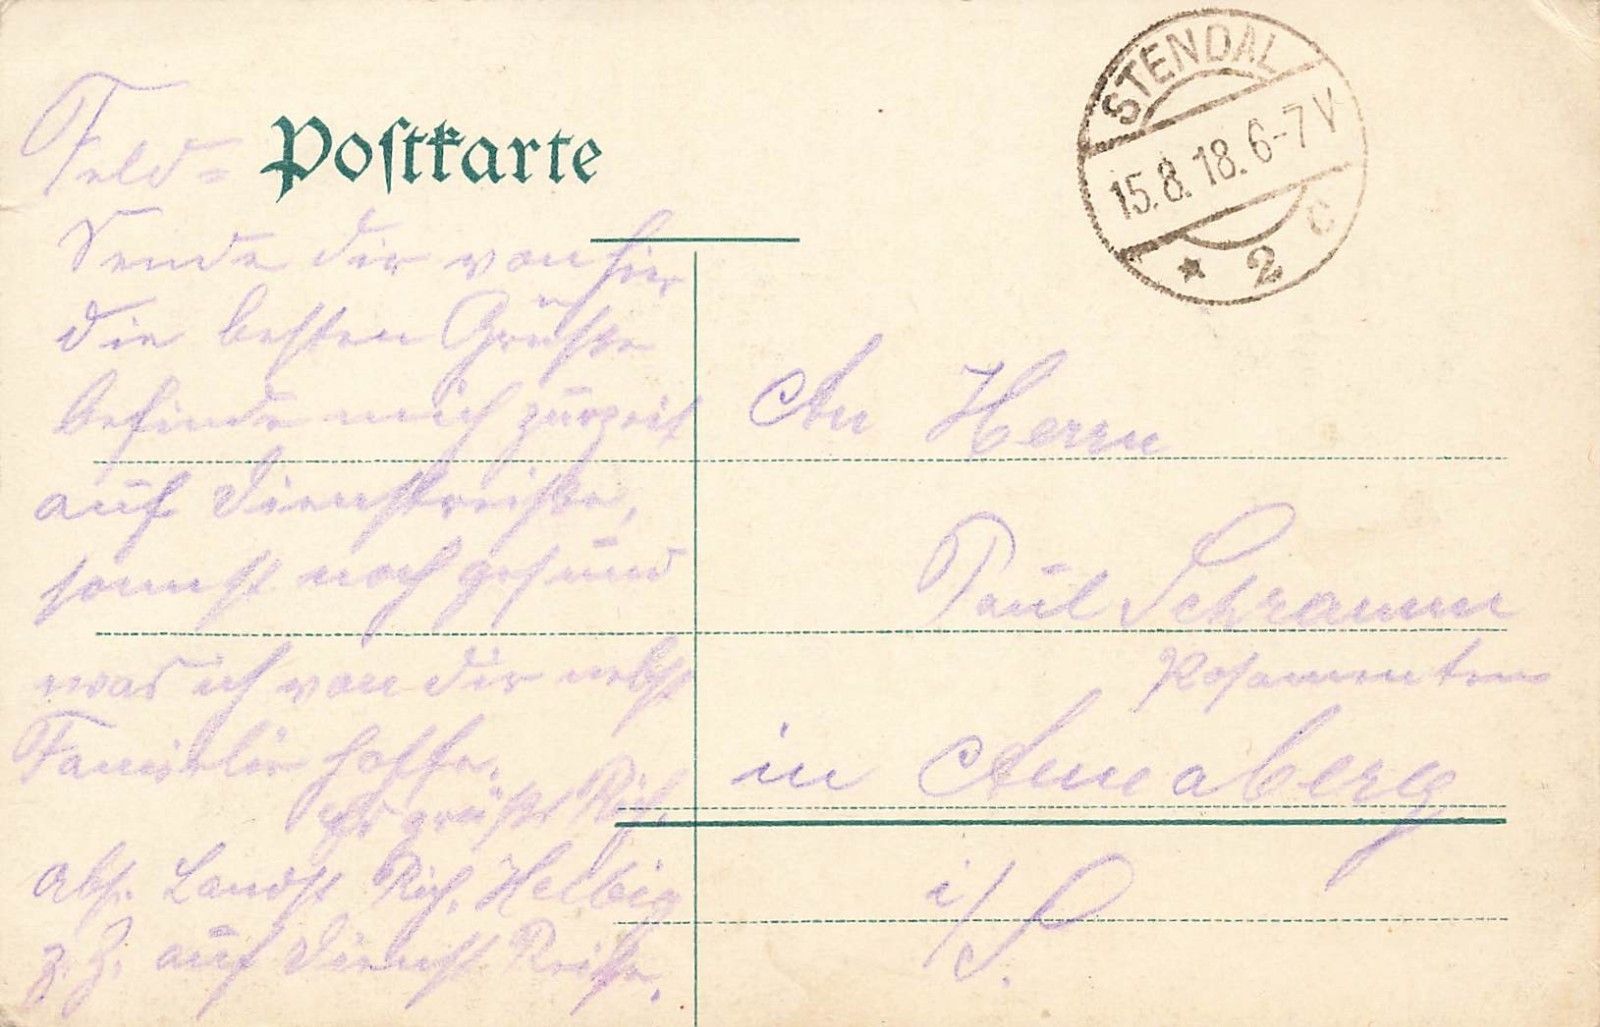 STENDAL
15.8.18.6-7V
* 2 c
Feld= Postkarte
Sende dir von hier
die besten Grüsse
befinde mich zurzeit
auf Dienstreise,
sonnst noch gesund
was ich von dir nebst
Familie hoffe.
es grüsst Rich.
Abs. Landst. Rich. Helbig
z. Z. auf Dienst Reise.
An Herrn
Paul Schramm
Posamenten
in Annaberg
i/S.